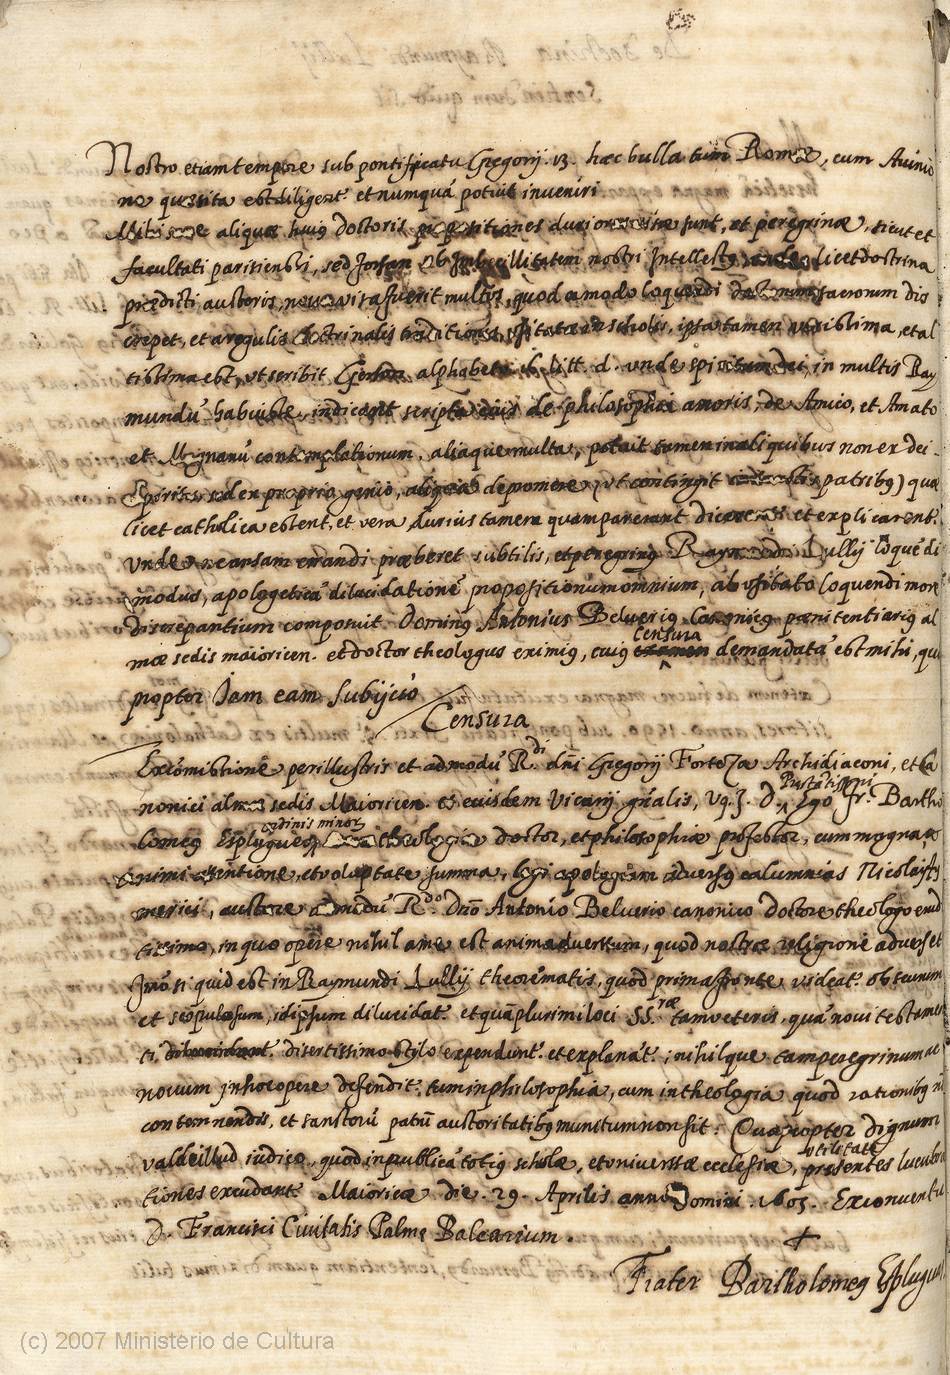 Nostro etiam tempore sub pontificatu Gregorij .13. hæc bulla tum Romæ, cum Avinio
ne quæsita est diligent.' et numquã potuit inveniri
aliquæ huiꝰ doctoris propositiones duriores visæ sunt, et peregrinæ, sicut et
facultati parisiensi, sed forsan ob Imbecillitatem nostri Intellectꝰ, licet doctrina
prædicti auctoris, non visa fuerit multis, quod a modo loquendi sacrorum dis
crepet, et a regulis doctrinalis traditionis, in scholis, ipsa tamen verissima, et al
tissima est, ut scribit Gerson alphabeto litt. d. unde spiritum dei, in multis Ray
mundũ habuisse, indicant scripta eius de philosophia amoris, de Amico, et Amato
et Magnanũ contemplationum, aliaque multa, potuit tamen in aliquibus non ex dei
Spiritu, sed ex proprio genio, aliqua depromere (ut contingit patribꝰ) quæ
licet catholica essent, et vera durius tamen quam par erant et explicarent.'
Unde ne causam errandi præberet subtilis, et peregrinꝰ Raymundi Lullij loquẽdi
modus, apologeticã dilucidationẽ propositionum omnium, ab usitato loquendi more
discrepantium composuit Dominꝰ Antonius Belverꝰ Canonicꝰ pœnitentiariꝰ al
mæ sedis maioricen. et doctor theologus eximiꝰ, cuiꝰ censura demandata est mihi, qua
propter Jam eam subijcio
Censura
Ex comissione perillustris et admodũ R.di dñi Gregorij Fortoza Archidiaconi, et Ca
nonici almæ sedis Maioricen. et eiusdem Vicarij gñalis, Ego fr. Bartho
lomeꝰ Esplugues ordinis minor theologiæ doctor, et philosophiæ professor, cum magna
animi attentione, et voluptate summa, legi apologiam adversꝰ calumnias Nicolai Ay
merici, auctore admodũ R.do Dño Antonio Belverio canonico doctore theologo erudi
tissimo, in quo opere nihil a me est animadversum, quod nostræ religioni adverset
Imò si quid est in Raymundi Lullij theorematis, quod prima fronte videat.' obscurum
et scopulosum, idipsum dilucidat.' et quã plurimi loci SS.ræ tam veteris, quã novi testamen
ti disertissimo stylo expendunt.' et explanãt.', nihilque tam peregrinum ac
novum in hoc opere defendit.' tum in philosophia, cum in theologia quod rationibꝰ nõ
contemnendis, et sanctorũ patrũ auctoritatibꝰ munitum non sit: Quapropter dignum
valde illud iudico, quod in publicã totiꝰ scholæ, et universæ ecclesiæ, utilitatẽ præsentes lucubra
tiones excudant.' Maioricæ die .29. Aprilis anno Domini .1605. Ex conventu
D. Francisci Civitatis Palmæ Balearium.
Frater Bartholomeꝰ Esplugues
(c) 2007 Ministerio de Cultura